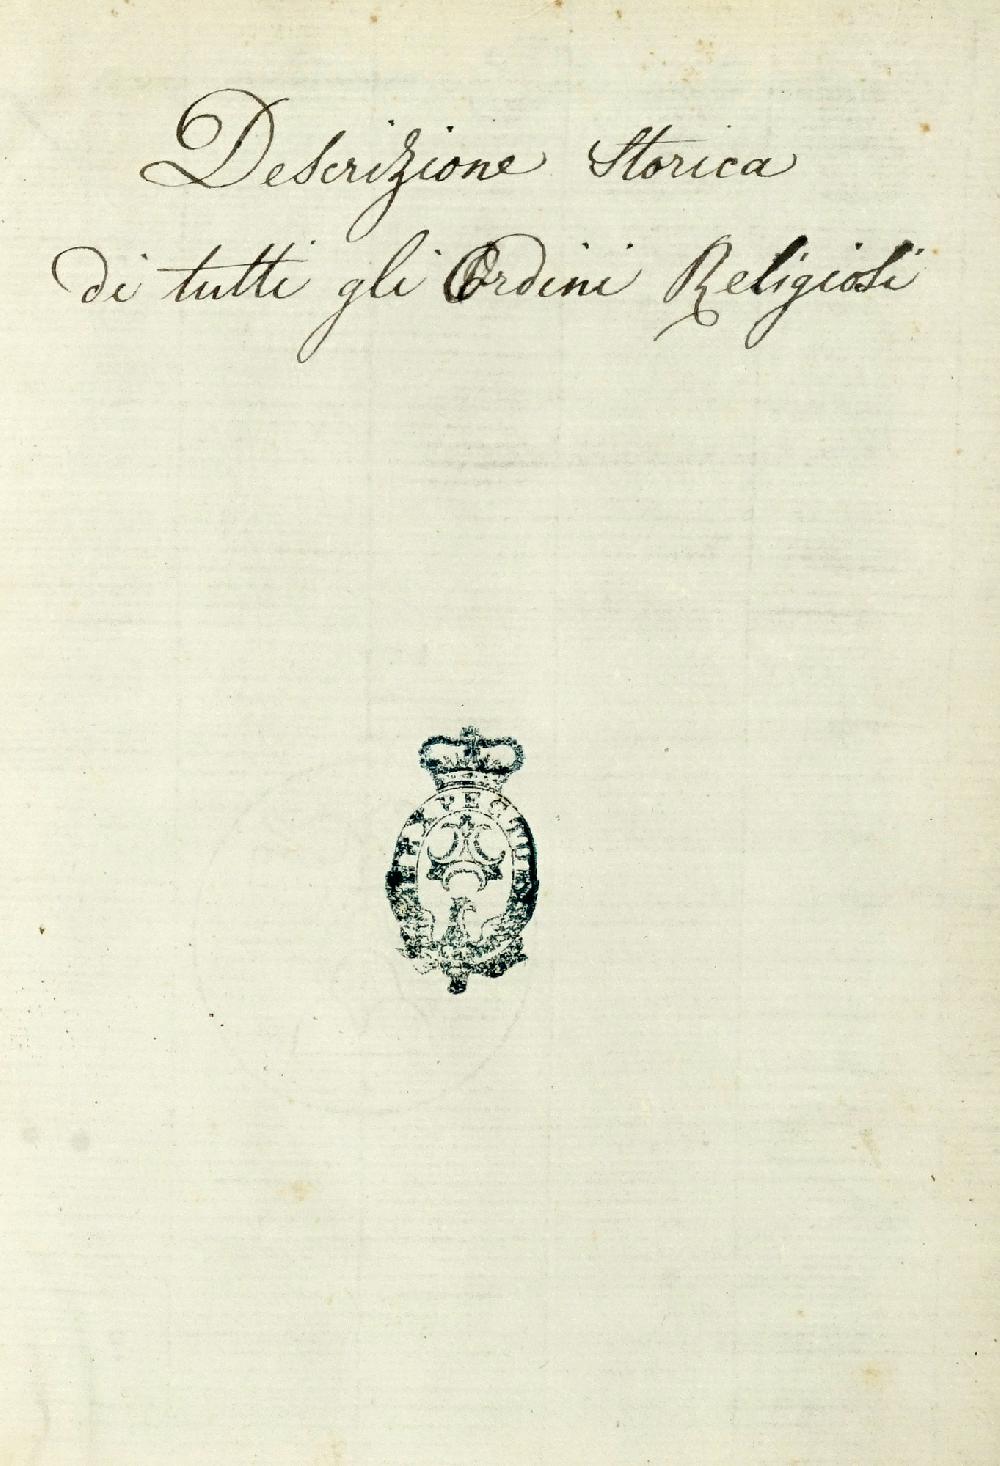 Descrizione Storica
di tutti gli Ordini Religiosi